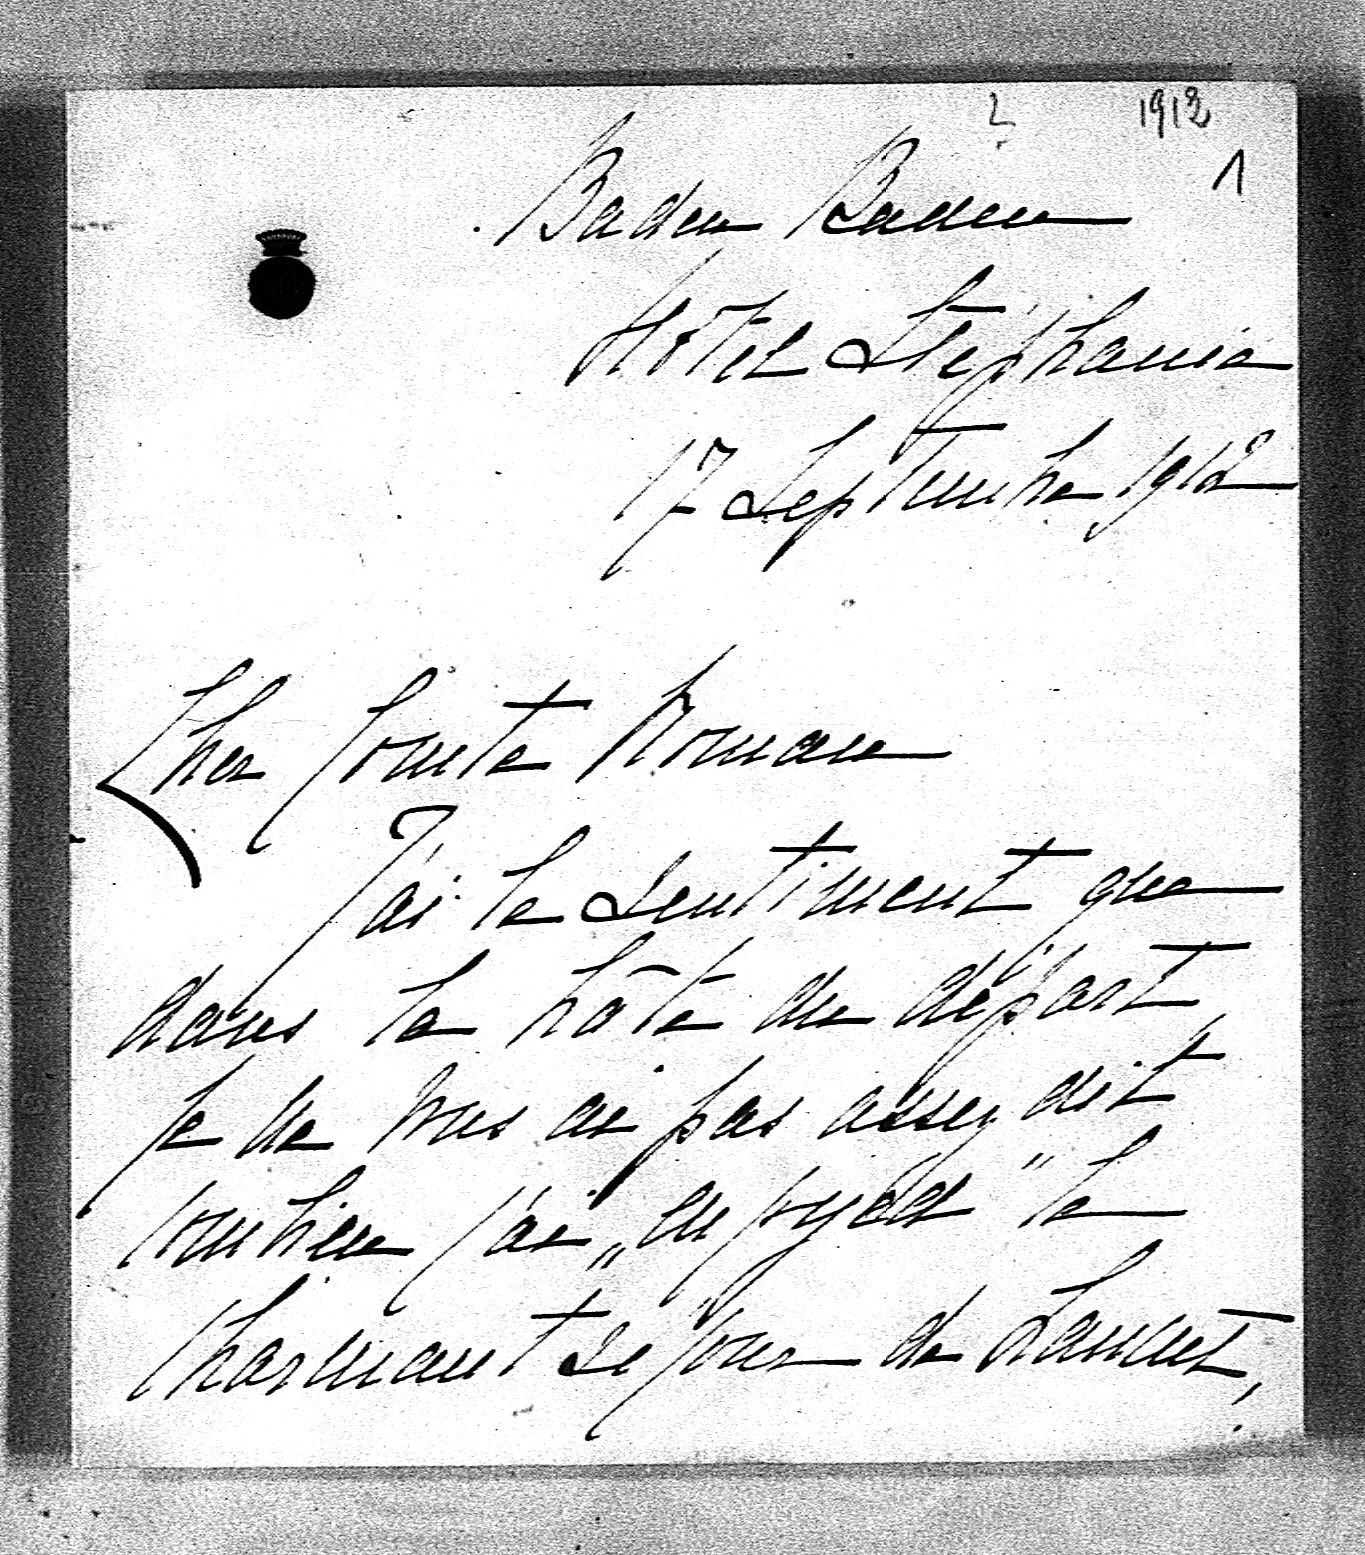 2 1912
1
Baden Baden
Hôtel Stéphanie
17 Septembre 1912
Cher Comte Roman
J'ai le sentiment que
dans la hâte du départ,
je ne vous ai pas assez dit
combien j'ai „enjoyed" le
charmant séjour de Lancut,